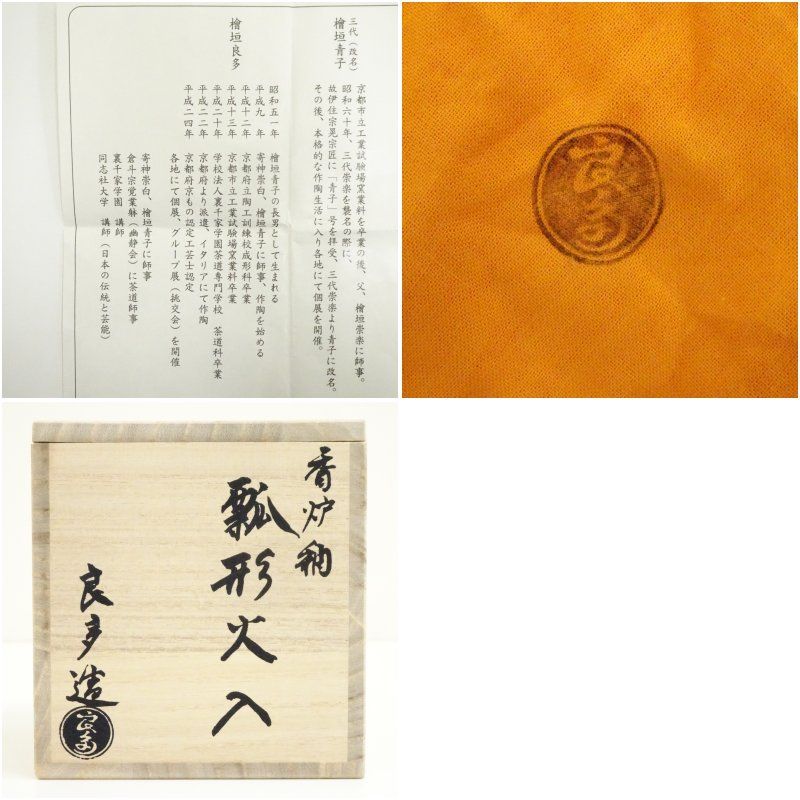 三代（改名）
檜垣青子
京都市立工業試験場窯業科を卒業の後、父、檜垣崇楽に師事。
昭和六十年、三代崇楽を襲名の際に、
故伊住宗晃宗匠に「青子」号を拝受、三代崇楽より青子に改名。
その後、本格的な作陶生活に入り各地にて個展を開催。
檜垣良多
昭和五一年 檜垣青子の長男として生まれる
平成九年 寄神崇白、檜垣青子に師事、作陶を始める
平成十二年 京都府立陶工訓練校成形科卒業
平成十三年 京都市立工業試験場窯業科卒業
平成二十年 学校法人裏千家学園茶道専門学校 茶道科卒業
平成二二年 京都府より派遣、イタリアにて作陶
平成二四年 京都府京もの認定工芸士認定
各地にて個展、グループ展（挑交会）を開催
寄神崇白、檜垣青子に師事
倉斗宗覚業躰（幽静会）に茶道師事
裏千家学園 講師
同志社大学 講師（日本の伝統と芸能）
良多
香炉釉
瓢形火入
良多造
良多